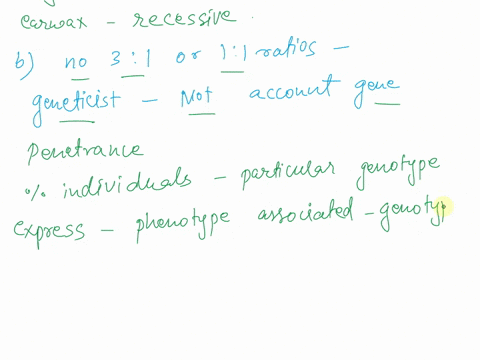 earwax - recessive
b) no 3:1 or 1:1 ratios -
geneticist - Not account gene
penetrance
% individuals - particular genotype
express - phenotype associated - genotyp